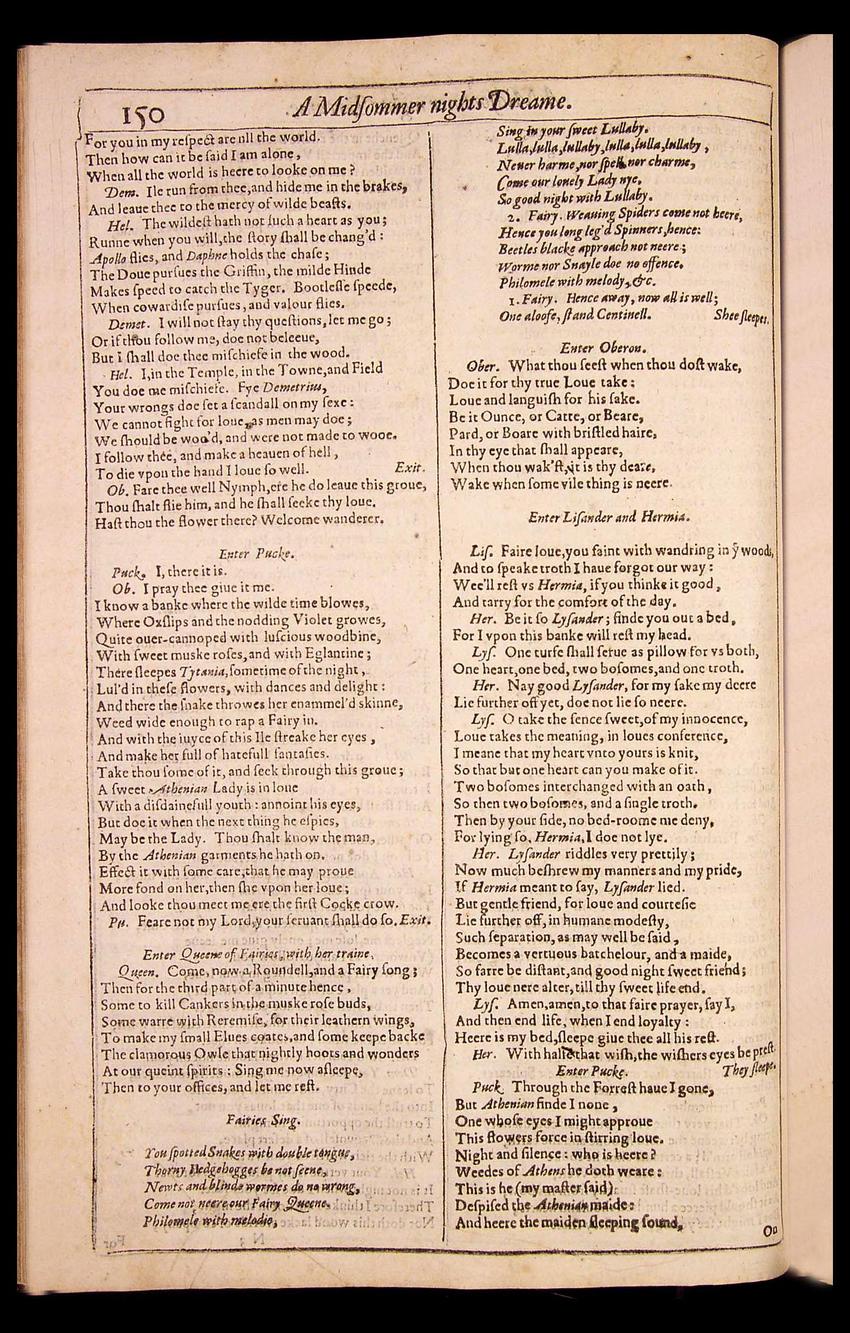 150
A Midſommer nights Dreame.
For you in my reſpect are nll the world.
Then how can it be ſaid I am alone,
When all the world is heere to looke on me?
Dem. Ile run from thee,and hide me in the brakes,
And leaue thee to the mercy of wilde beaſts.
Hel. The wildeſt hath not ſuch a heart as you;
Runne when you will,the ſtory ſhall be chang'd:
Apollo flies, and Daphne holds the chaſe;
The Doue purſues the Griffin, the milde Hinde
Makes ſpeed to catch the Tyger. Bootleſſe ſpeede,
When cowardiſe purſues, and valour flies.
Demet. I will not ſtay thy queſtions,let me go;
Or if thou follow me, doe not beleeue,
But I ſhall doe thee miſchiefe in the wood.
Hel. I,in the Temple, in the Towne,and Field
You doe me miſchiefe. Fye Demetrius,
Your wrongs doe ſet a ſcandall on my ſexe:
We cannot fight for loue, as men may doe;
We ſhould be woo'd, and were not made to wooe.
I follow thee, and make a heauen of hell,
To die vpon the hand I loue ſo well. Exit.
Ob. Fare thee well Nymph,ere he do leaue this groue,
Thou ſhalt flie him, and he ſhall ſeeke thy loue.
Haſt thou the flower there? Welcome wanderer.
Enter Pucke.
Puck. I, there it is.
Ob. I pray thee giue it me.
I know a banke where the wilde time blowes,
Where Oxſlips and the nodding Violet growes,
Quite ouer-cannoped with luſcious woodbine,
With ſweet muske roſes,and with Eglantine;
There ſleepes Tytania,ſometime of the night,
Lul'd in theſe flowers, with dances and delight:
And there the ſnake throwes her enammel'd skinne,
Weed wide enough to rap a Fairy in.
And with the iuyce of this Ile ſtreake her eyes,
And make her full of hatefull fantaſies.
Take thou ſome of it, and ſeek through this groue;
A ſweet Athenian Lady is in loue
With a diſdainefull youth: annoint his eyes,
But doe it when the next thing he eſpies,
May be the Lady. Thou ſhalt know the man,
By the Athenian garments he hath on.
Effect it with ſome care,that he may proue
More fond on her,then ſhe vpon her loue;
And looke thou meet me ere the firſt Cocke crow.
Pu. Feare not my Lord,your ſeruant ſhall do ſo. Exit.
Enter Queene of Fairies, with her traine.
Queen. Come, now a Roundell,and a Fairy ſong;
Then for the third part of a minute hence,
Some to kill Cankers in the muske roſe buds,
Some warre with Reremiſe, for their leathern wings,
To make my ſmall Elues coates,and ſome keepe backe
The clamorous Owle that nightly hoots and wonders
At our queint ſpirits: Sing me now aſleepe,
Then to your offices, and let me reſt.
Fairies Sing.
You ſpotted Snakes with double tongue,
Thorny Hedgehogges be not ſeene,
Newts and blinde wormes do no wrong,
Come not neere our Fairy Queene.
Philomele with melodie,
Sing in your ſweet Lullaby.
Lulla,lulla,lullaby,lulla,lulla,lullaby,
Neuer harme,nor ſpell, nor charme,
Come our louely Lady nye,
So good night with Lullaby.
2. Fairy. Weauing Spiders come not heere,
Hence you long leg'd Spinners,hence:
Beetles blacke approach not neere;
Worme nor Snayle doe no offence.
Philomele with melody, &c.
1. Fairy. Hence away, now all is well;
One aloofe, ſtand Centinell. Shee ſleepes.
Enter Oberon.
Ober. What thou ſeeſt when thou doſt wake,
Doe it for thy true Loue take:
Loue and languiſh for his ſake.
Be it Ounce, or Catte, or Beare,
Pard, or Boare with briſtled haire,
In thy eye that ſhall appeare,
When thou wak'ſt, it is thy deare,
Wake when ſome vile thing is neere.
Enter Liſander and Hermia.
Liſ. Faire loue,you faint with wandring in yͤ woods,
And to ſpeake troth I haue forgot our way:
Wee'll reſt vs Hermia, if you thinke it good,
And tarry for the comfort of the day.
Her. Be it ſo Lyſander; finde you out a bed,
For I vpon this banke will reſt my head.
Lyſ. One turfe ſhall ſerue as pillow for vs both,
One heart,one bed, two boſomes,and one troth.
Her. Nay good Lyſander, for my ſake my deere
Lie further off yet, doe not lie ſo neere.
Lyſ. O take the ſence ſweet,of my innocence,
Loue takes the meaning, in loues conference,
I meane that my heart vnto yours is knit,
So that but one heart can you make of it.
Two boſomes interchanged with an oath,
So then two boſomes, and a ſingle troth.
Then by your ſide, no bed-roome me deny,
For lying ſo, Hermia, I doe not lye.
Her. Lyſander riddles very prettily;
Now much beſhrew my manners and my pride,
If Hermia meant to ſay, Lyſander lied.
But gentle friend, for loue and courteſie
Lie further off, in humane modeſty,
Such ſeparation, as may well be ſaid,
Becomes a vertuous batchelour, and a maide,
So farre be diſtant,and good night ſweet friend;
Thy loue nere alter, till thy ſweet life end.
Lyſ. Amen,amen,to that faire prayer, ſay I,
And then end life, when I end loyalty:
Heere is my bed,ſleepe giue thee all his reſt.
Her. With halfe that wiſh,the wiſhers eyes be preſt.
Enter Pucke. They ſleepe.
Puck. Through the Forreſt haue I gone,
But Athenian finde I none,
One whoſe eyes I might approue
This flowers force in ſtirring loue.
Night and ſilence: who is heere?
Weedes of Athens he doth weare:
This is he (my maſter ſaid)
Deſpiſed the Athenian maide:
And heere the maiden ſleeping ſound,
On